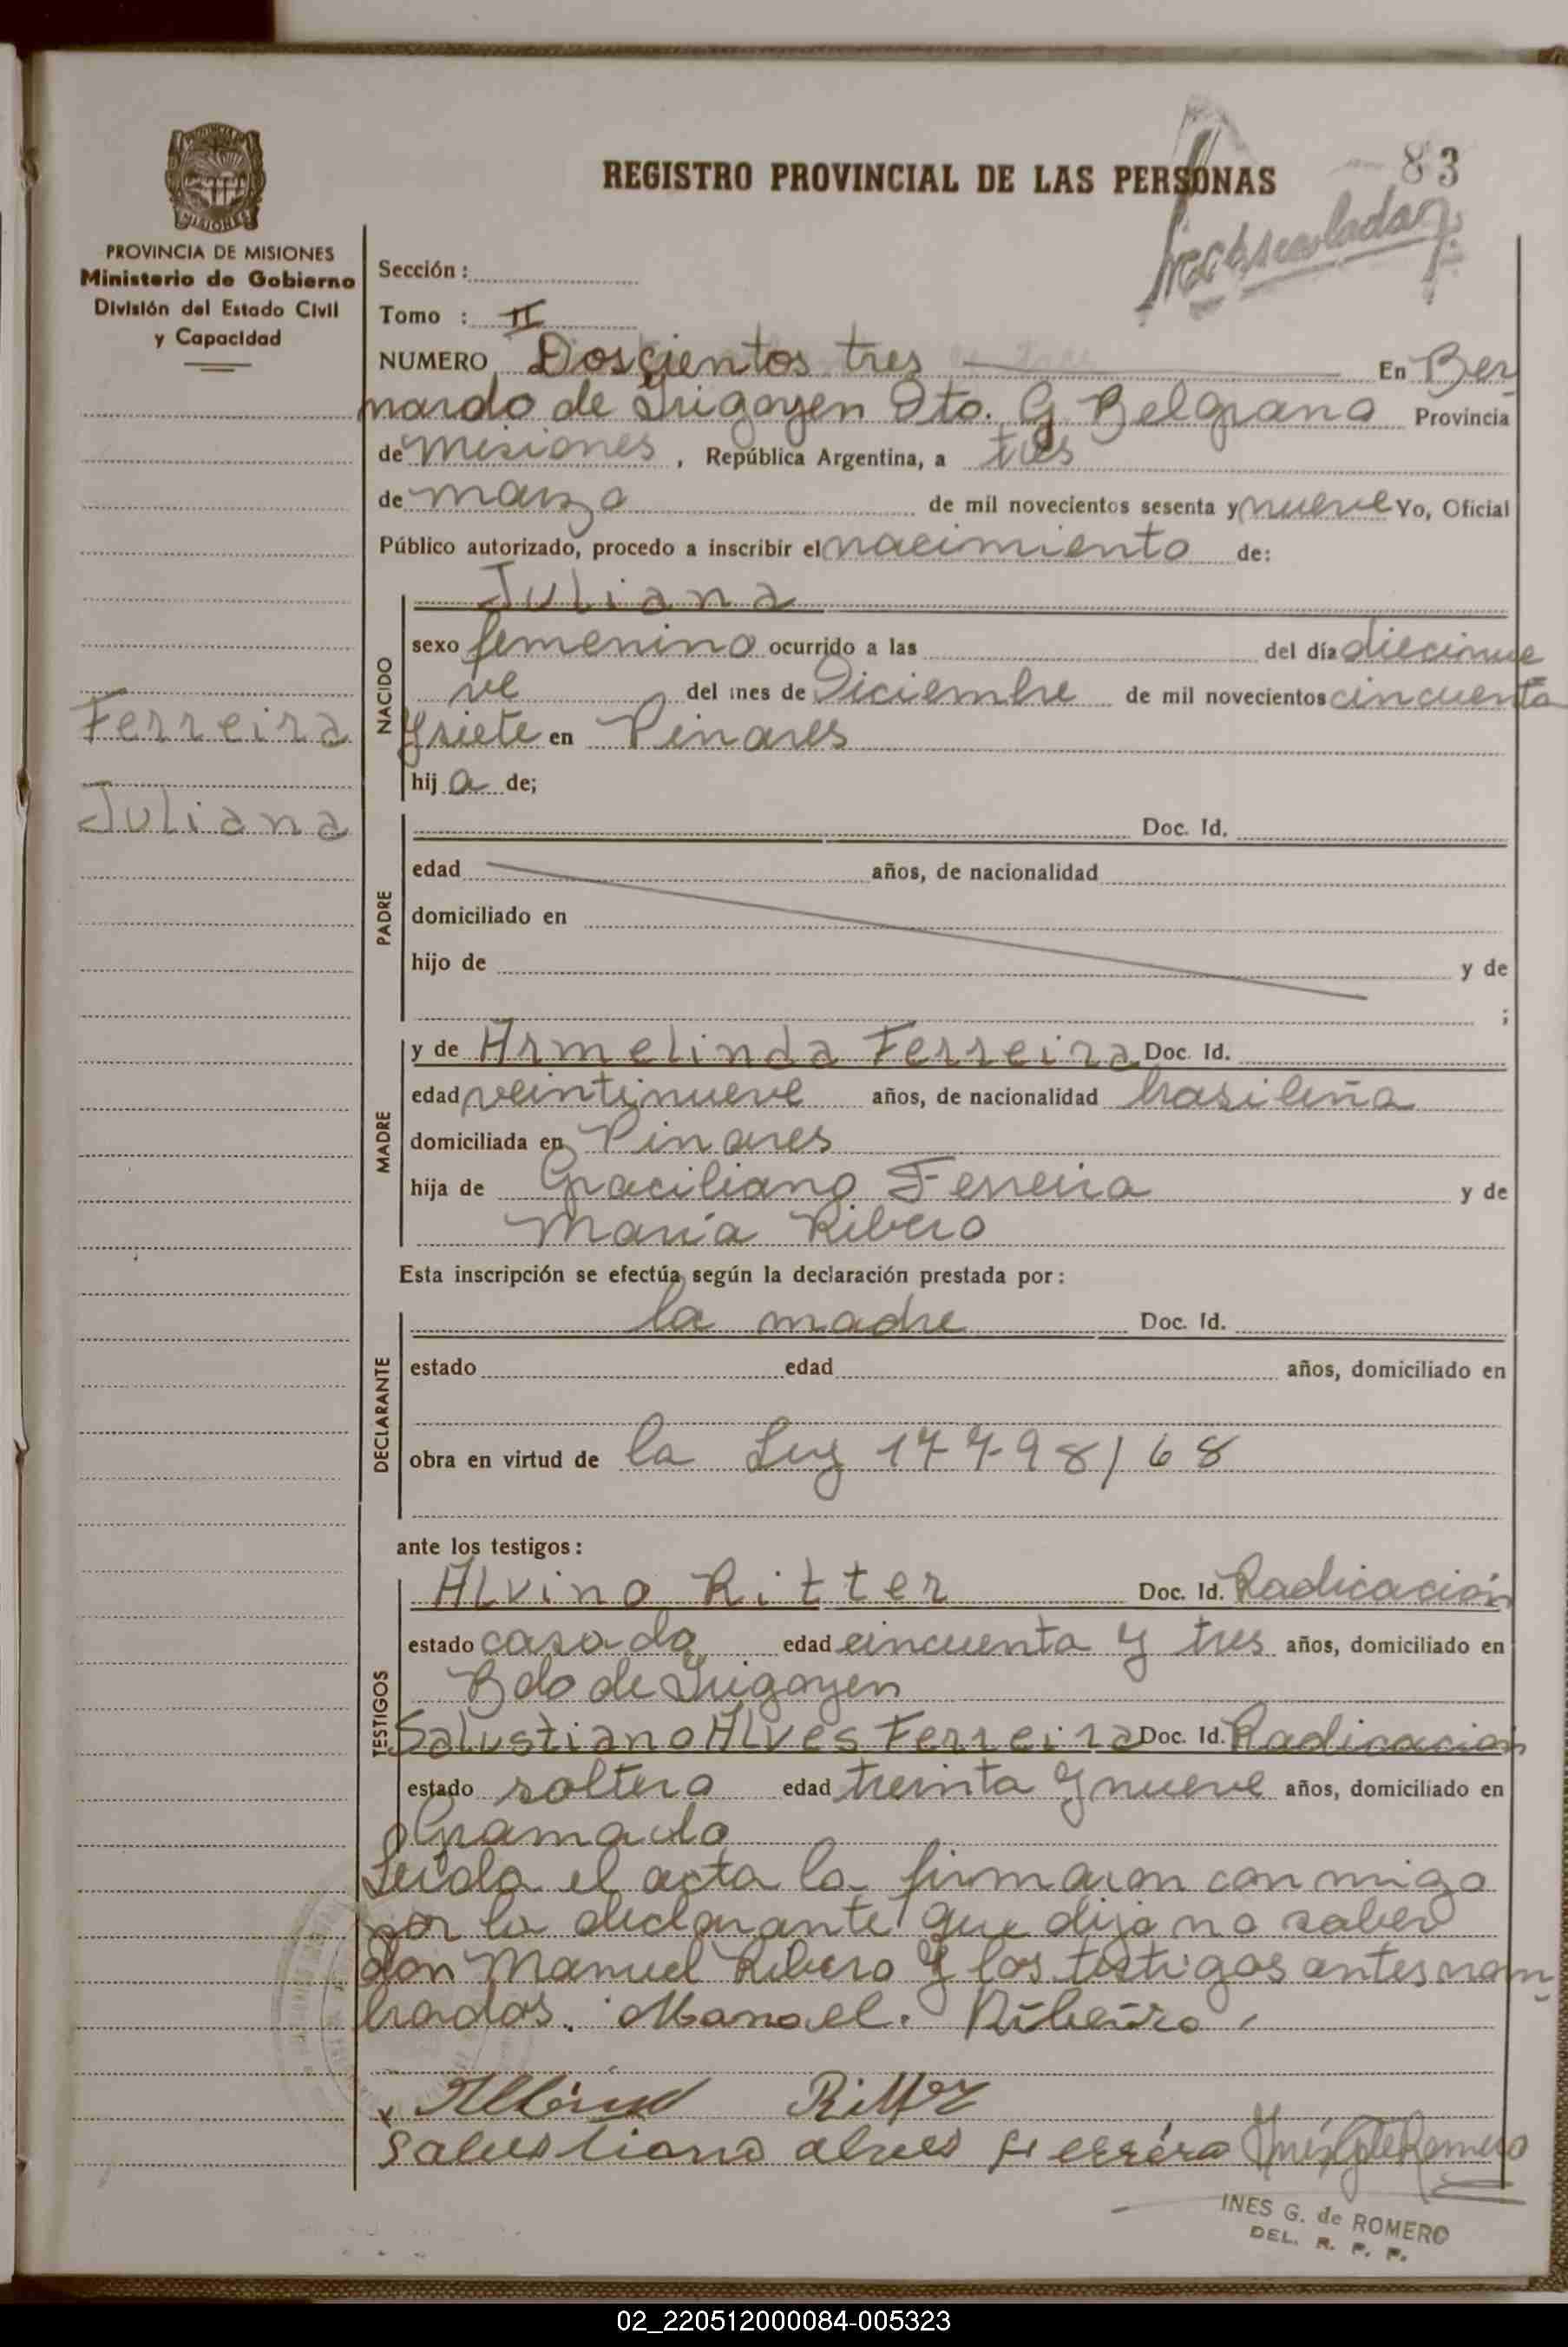 REGISTRO PROVINCIAL DE LAS PERSONAS
83
MISIONES
PROVINCIA DE MISIONES
Ministerio de Gobierno
División del Estado Civil
y Capacidad
Sección :
Tomo : II
NUMERO Doscientos tres En Ber
nardo de Irigoyen Dto. G Belgrano Provincia
de Misiones , República Argentina, a tres
de marzo de mil novecientos sesenta y nueve Yo, Oficial
Público autorizado, procedo a inscribir el nacimiento de:
NACIDO
Juliana
sexo femenino ocurrido a las del día diecinue
ve del mes de Diciembre de mil novecientos cincuenta
Ferreira
y siete en Pinares
hij a de;
Juliana
PADRE
Doc. Id.
edad años, de nacionalidad
domiciliado en
hijo de y de
;
MADRE
y de Armelinda Ferreira Doc. Id.
edad veintinueve años, de nacionalidad brasileña
domiciliada en Pinares
hija de Graciliano Ferreira y de
María Ribero
Esta inscripción se efectúa según la declaración prestada por :
DECLARANTE
la madre Doc. Id.
estado edad años, domiciliado en
obra en virtud de la Ley 17798/68
ante los testigos :
TESTIGOS
Alvino Ritter Doc. Id. Radicación
estado casado edad cincuenta y tres años, domiciliado en
Bdo de Irigoyen
Salustiano Alves Ferreira Doc. Id. Radicacion
estado soltero edad treinta y nueve años, domiciliado en
Gramado
Leida el acta la firmaron conmigo
por la declarante que dijo no saber
don Manuel Ribero y los testigos antes nom
brados. Manoel. Ribeiro
Albino Ritter
Salustiano alves Ferrera
INES G. de ROMERO
DEL. R. P. P.
02_220512000084-005323